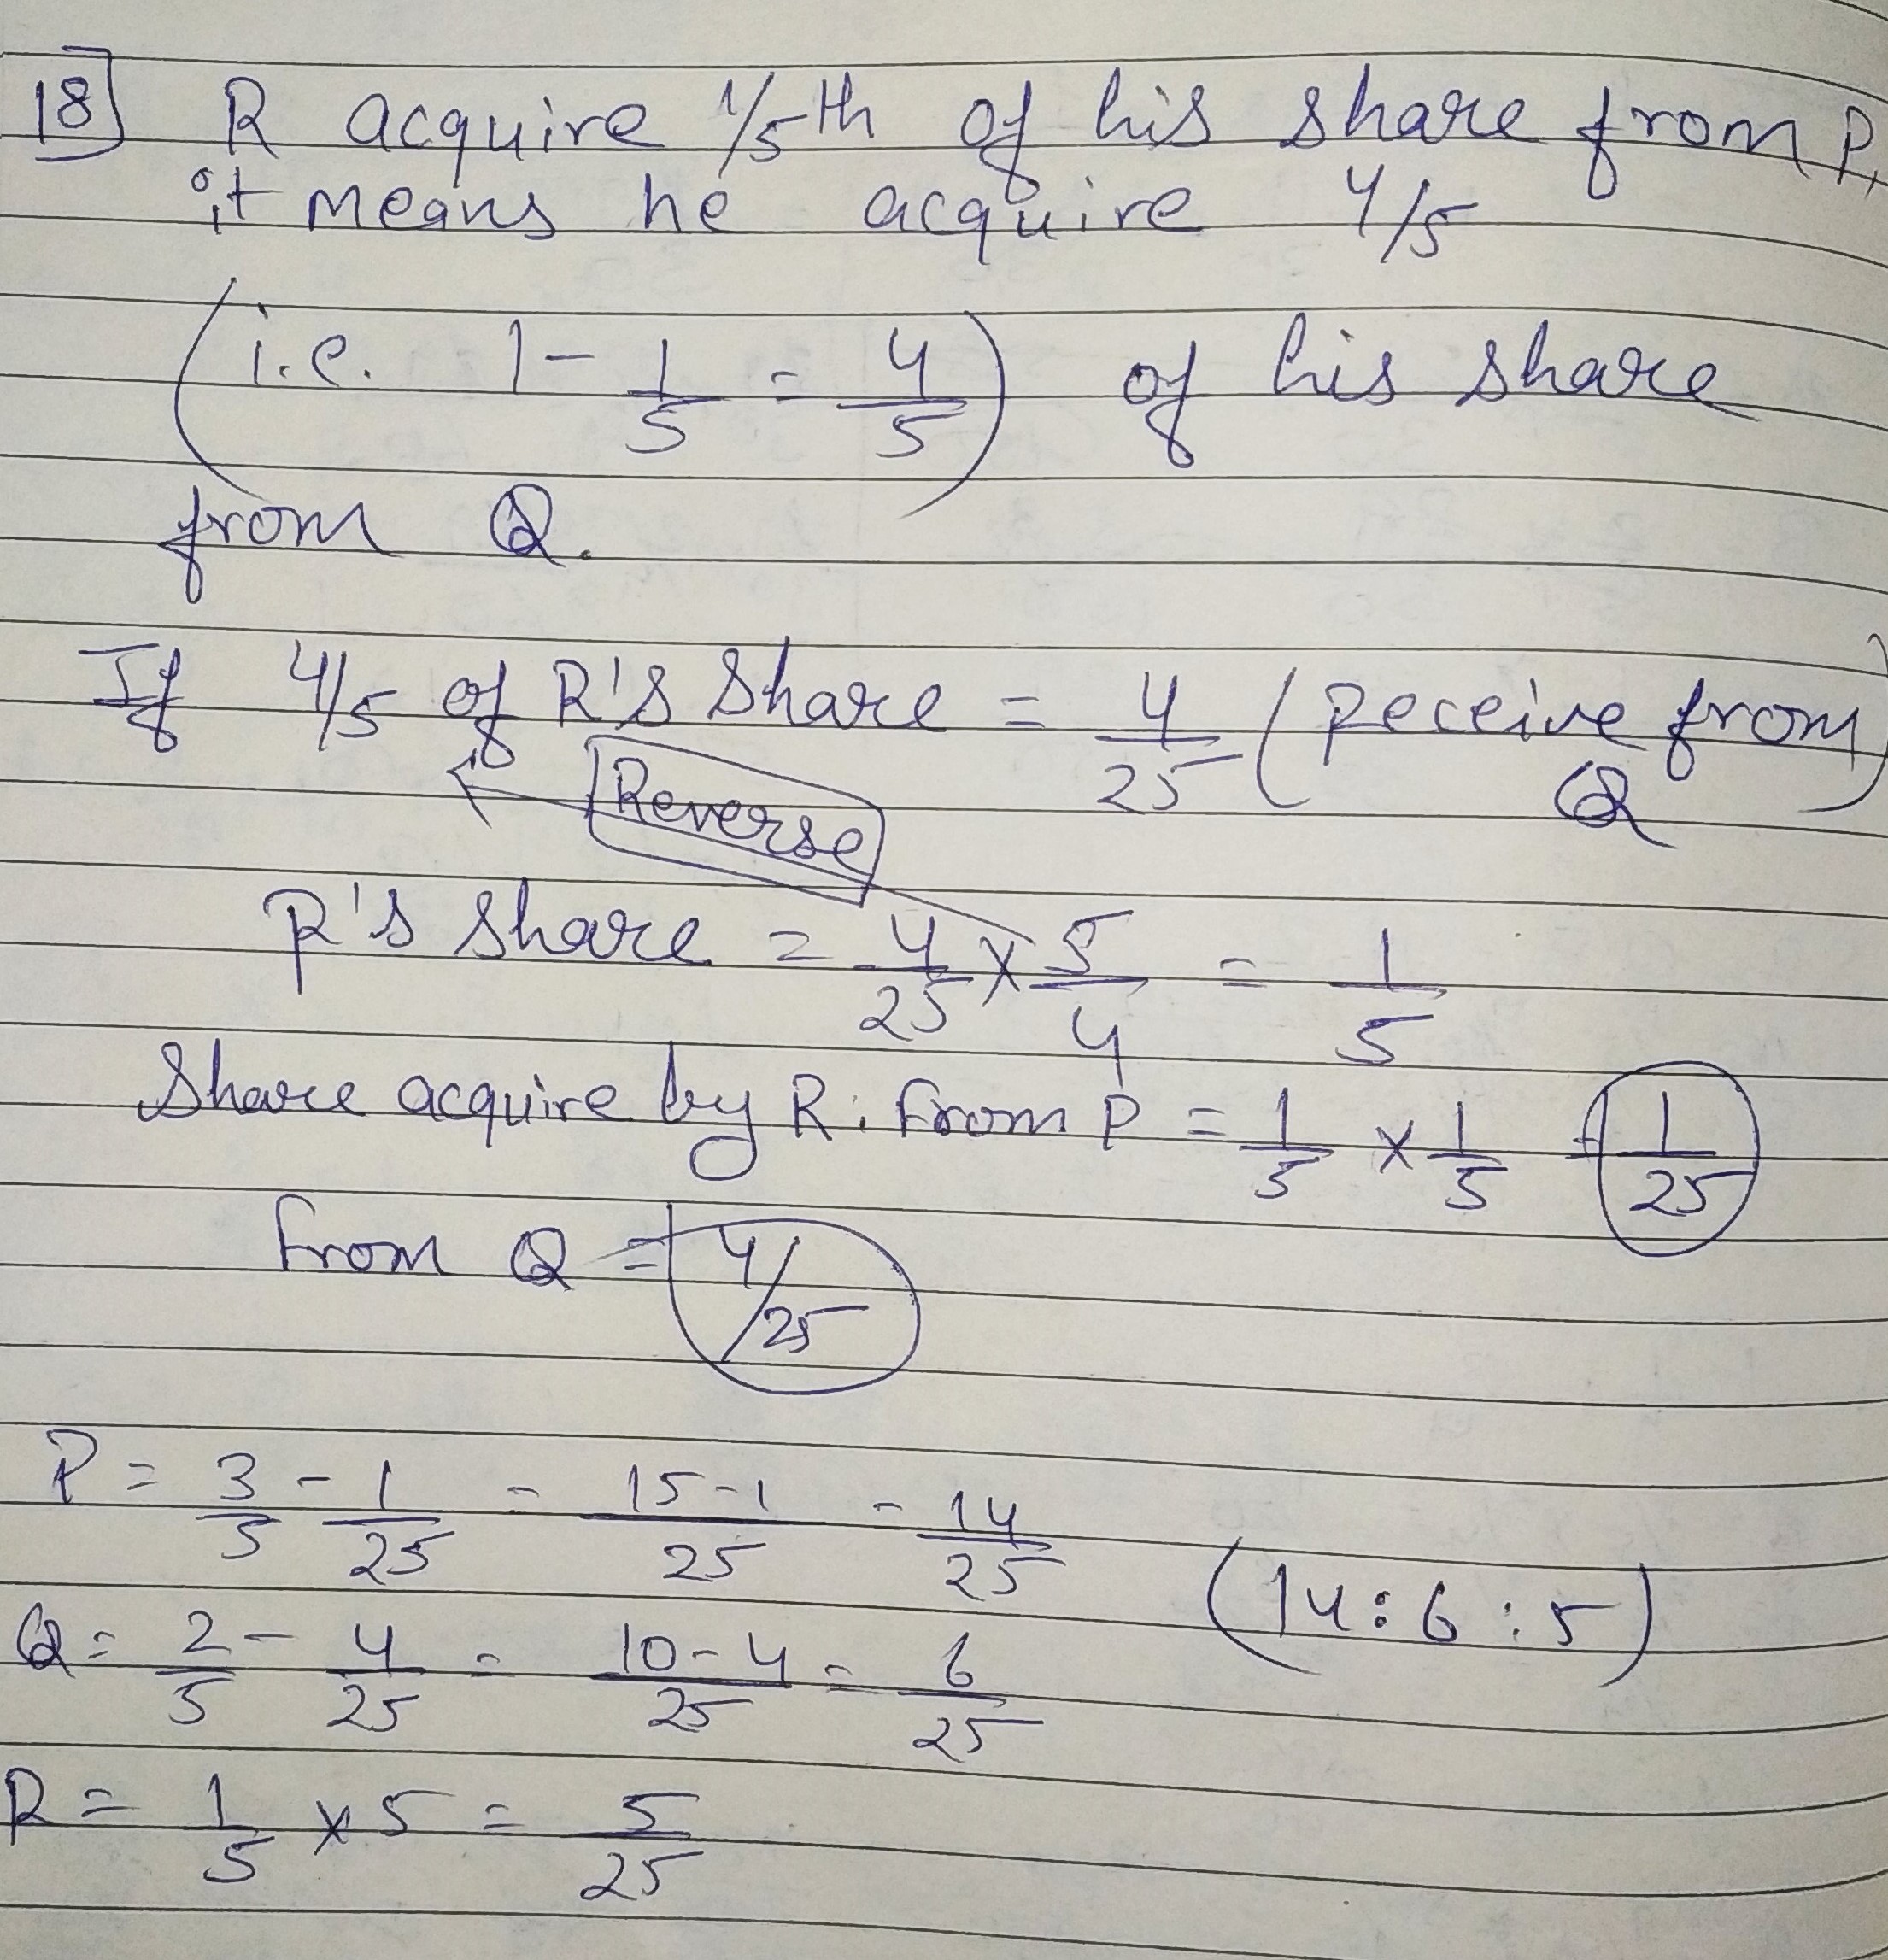 18] R acquire 1/5th of his share from P,
it means he acquire 4/5
(i.e. 1 - 1/5 = 4/5) of his share
from Q.
If 4/5 of R's Share = 4/25 (Receive from Q)
Reverse
R's share = 4/25 × 5/4 = 1/5
Share acquire by R. from P = 1/5 × 1/5 = 1/25
from Q = 4/25
P = 3/5 - 1/25 = 15-1/25 = 14/25
(14:6:5)
Q = 2/5 - 4/25 = 10-4/25 = 6/25
R = 1/5 × 5 = 5/25